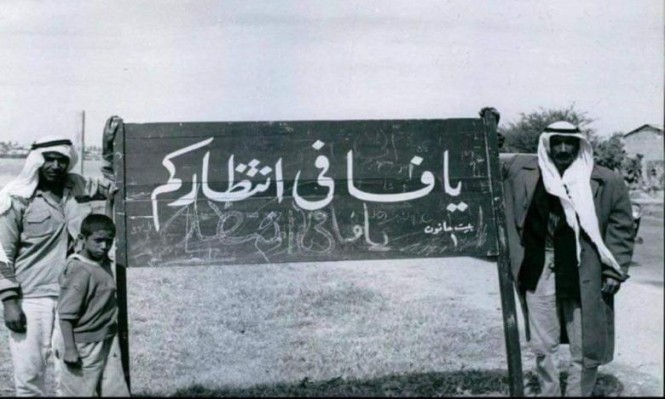 يافا في انتظاركم
يافا في انتظا
بيت حانون
١